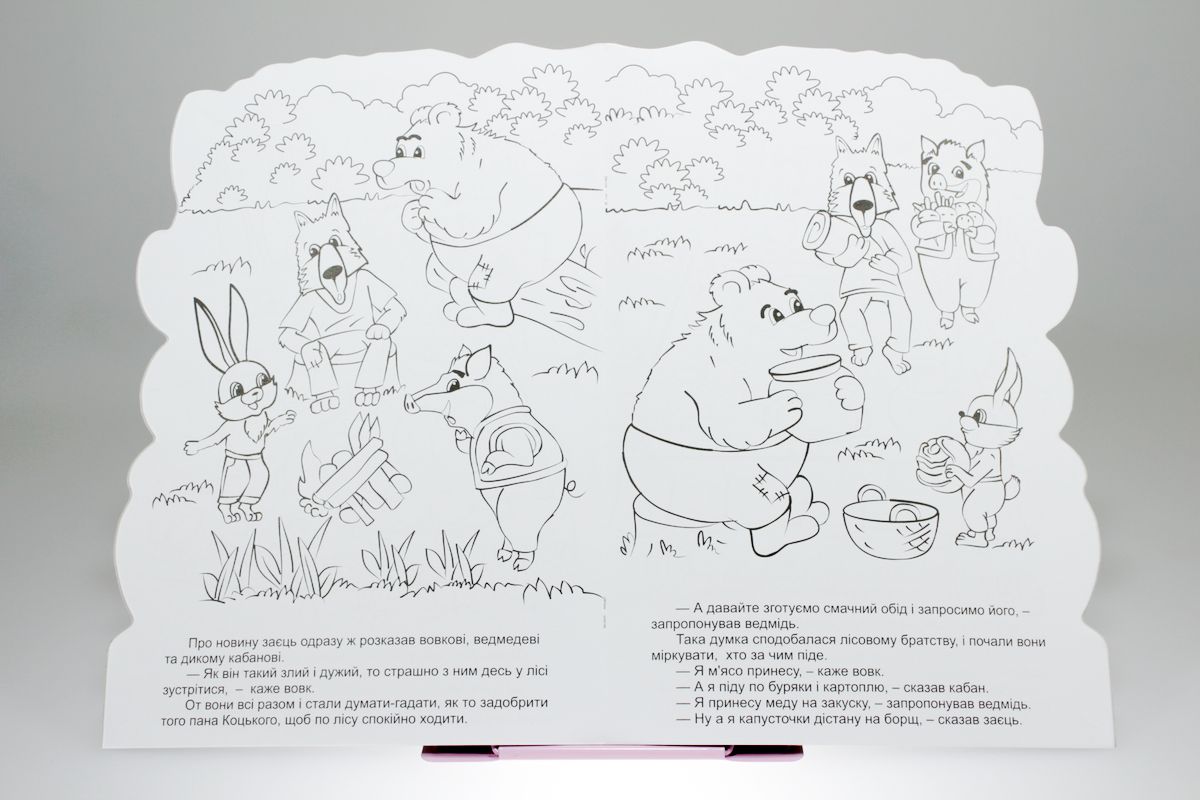 Про новину заєць одразу ж розказав вовкові, ведмедеві
та дикому кабанові.
— Як він такий злий і дужий, то страшно з ним десь у лісі
зустрітися, – каже вовк.
От вони всі разом і стали думати-гадати, як то задобрити
того пана Коцького, щоб по лісу спокійно ходити.
— А давайте зготуємо смачний обід і запросимо його, –
запропонував ведмідь.
Така думка сподобалася лісовому братству, і почали вони
міркувати, хто за чим піде.
— Я м'ясо принесу, – каже вовк.
— А я піду по буряки і картоплю, – сказав кабан.
— Я принесу меду на закуску, – запропонував ведмідь.
— Ну а я капусточки дістану на борщ, – сказав заєць.